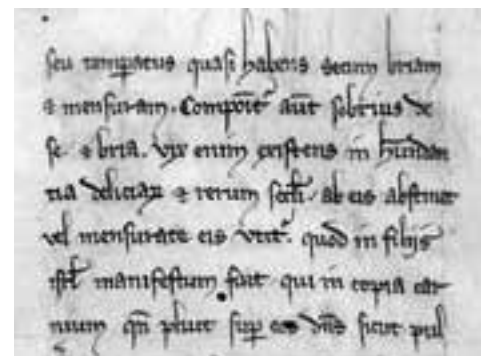 seu temꝑatus quasi habens secum briam
⁊ mensuram. Componit᷑ aūt sobrius de
se ⁊ bria. vix enim existens in habūdan
tia deliciaꝝ ⁊ rerum sc̄li. ab eis abstinet
vel mensurate eis vtit᷑. quod in filijs
isrl̄ manifestum fuit qui in copia car
nium qn̄ pluit suꝑ eos dn̄s sicut pul